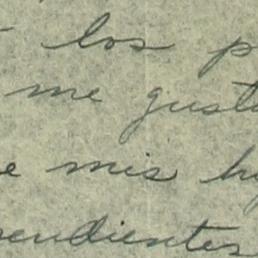 los p
me gust
e mis hij
endientes